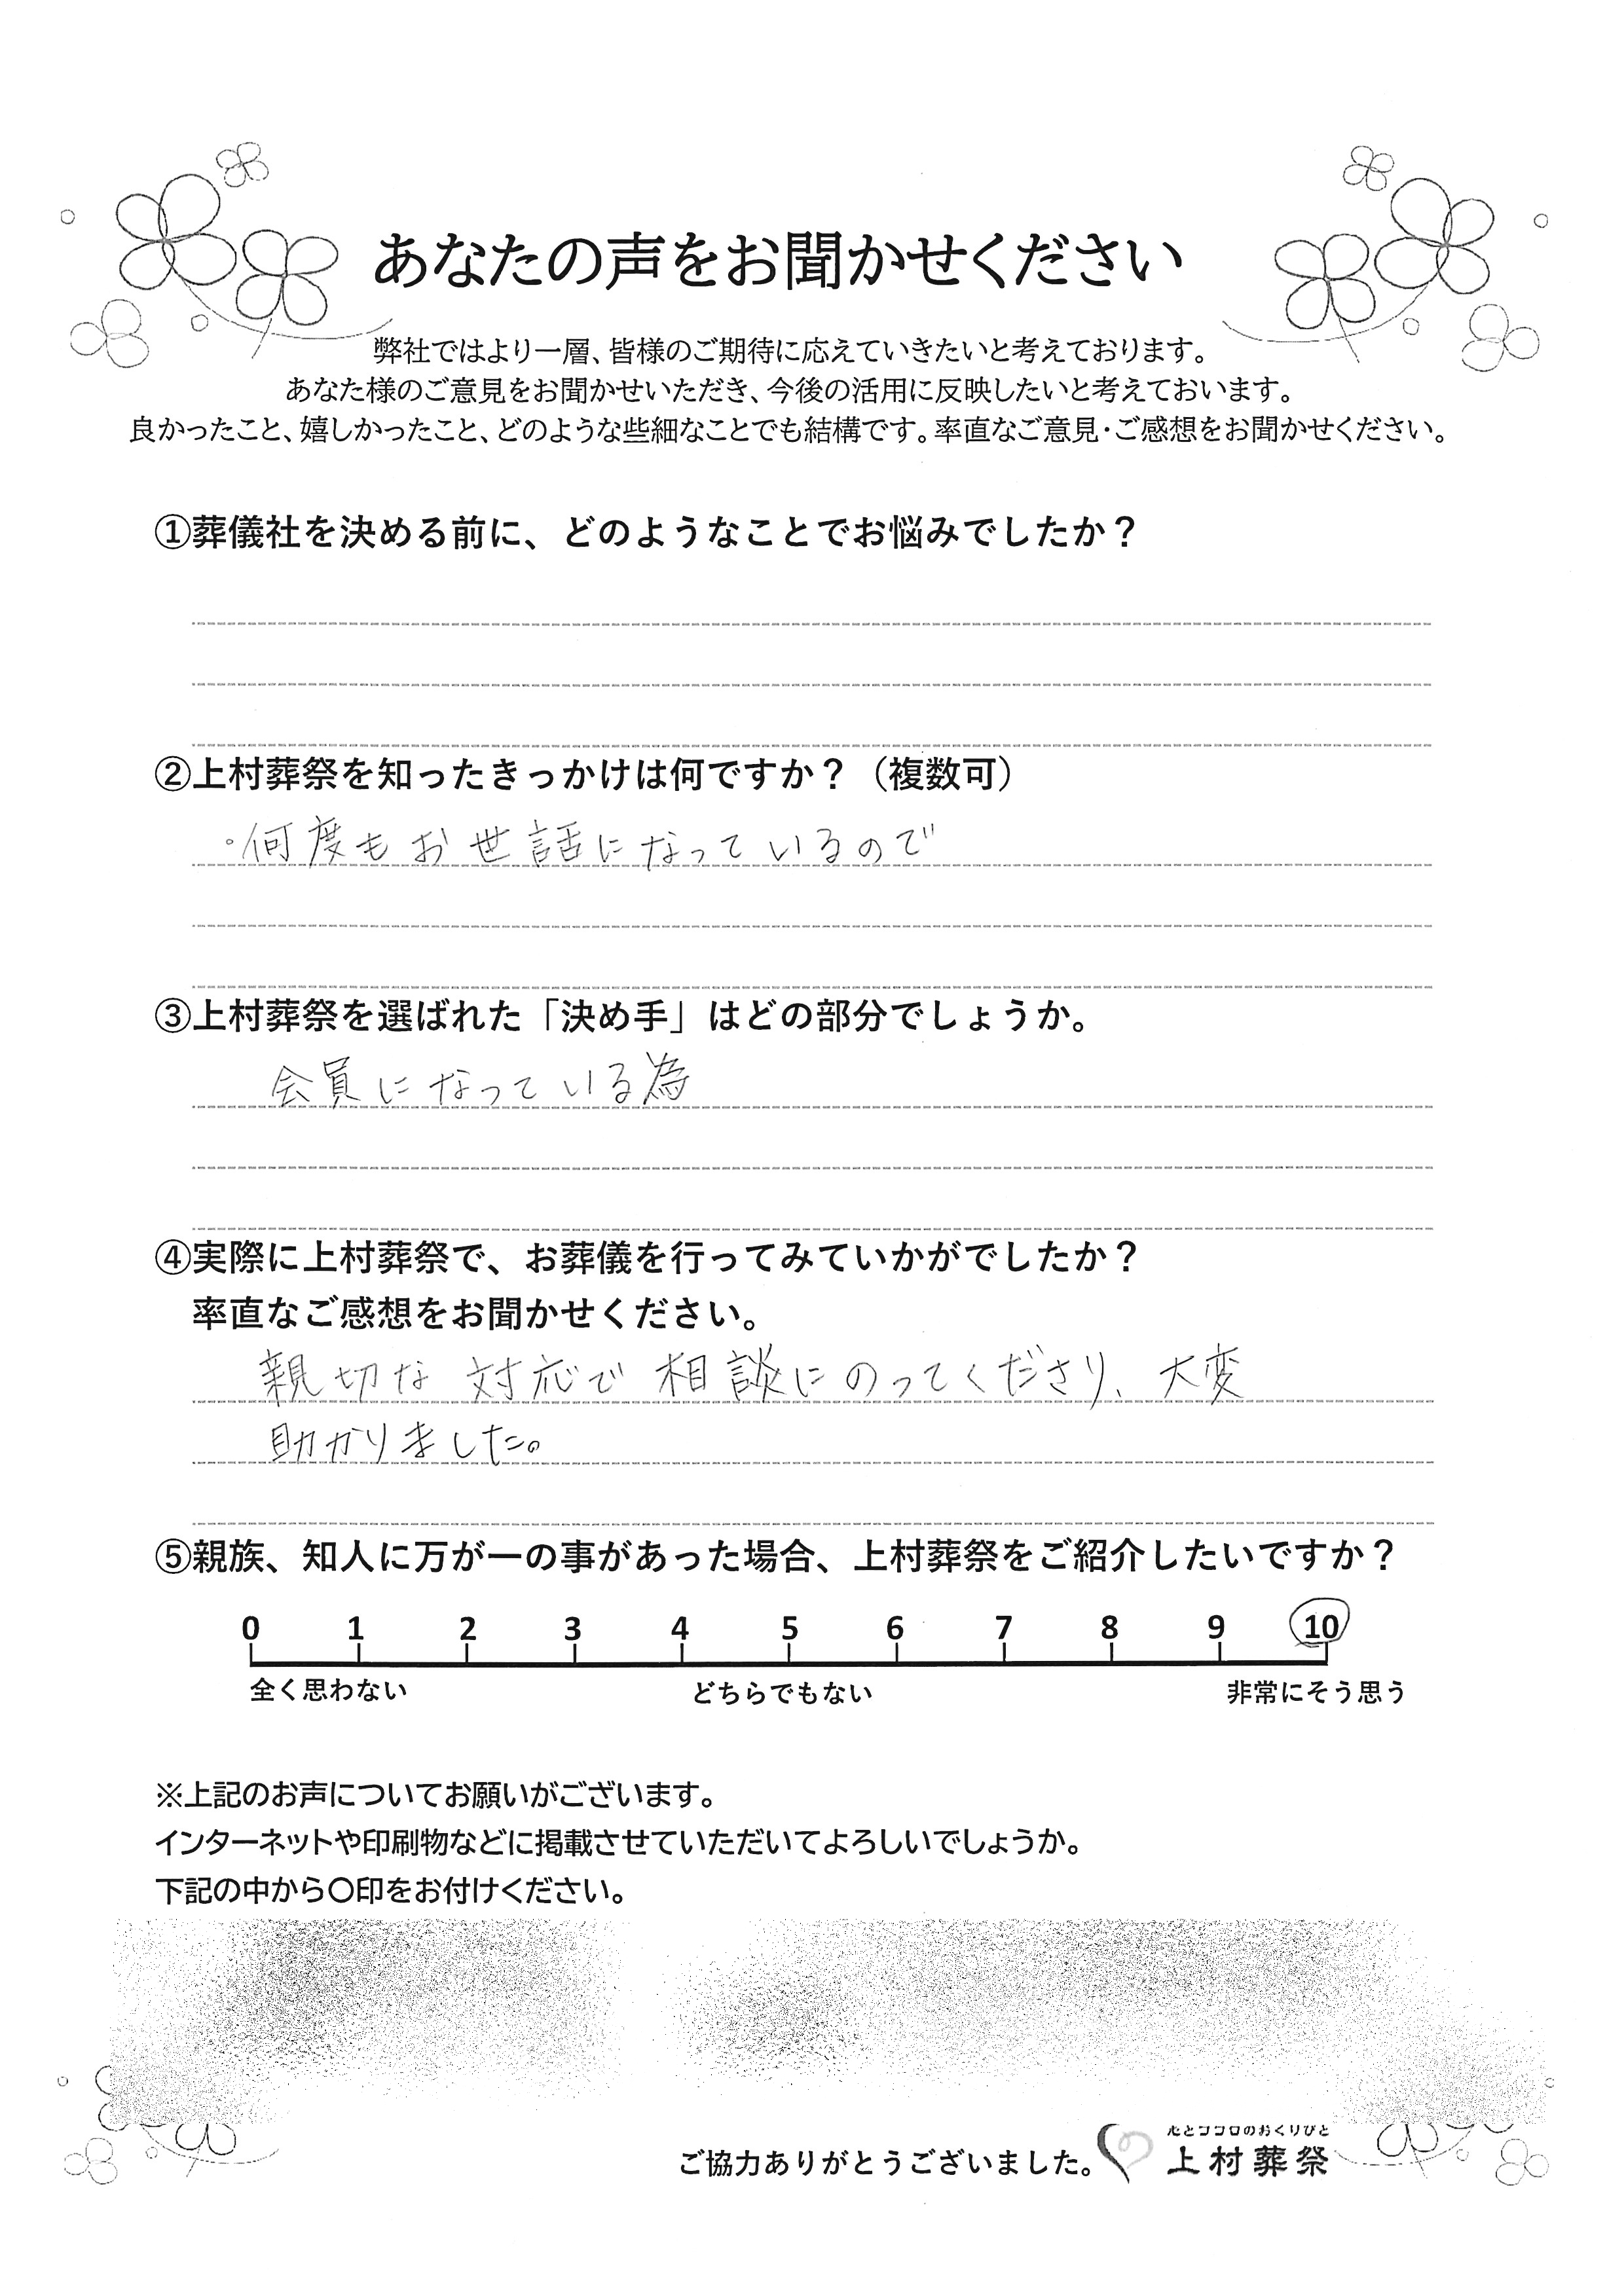 あなたの声をお聞かせください
弊社ではより一層、皆様のご期待に応えていきたいと考えております。
あなた様のご意見をお聞かせいただき、今後の活用に反映したいと考えておいます。
良かったこと、嬉しかったこと、どのような些細なことでも結構です。率直なご意見・ご感想をお聞かせください。
①葬儀社を決める前に、どのようなことでお悩みでしたか？
②上村葬祭を知ったきっかけは何ですか？（複数可）
・何度もお世話になっているので
③上村葬祭を選ばれた「決め手」はどの部分でしょうか。
会員になっている為
④実際に上村葬祭で、お葬儀を行ってみていかがでしたか？
率直なご感想をお聞かせください。
親切な対応で相談にのってくださり、大変
助かりました。
⑤親族、知人に万が一の事があった場合、上村葬祭をご紹介したいですか？
0 1 2 3 4 5 6 7 8 9 10
全く思わない どちらでもない 非常にそう思う
※上記のお声についてお願いがございます。
インターネットや印刷物などに掲載させていただいてよろしいでしょうか。
下記の中から〇印をお付けください。
心とココロのおくりびと
ご協力ありがとうございました。 上村葬祭